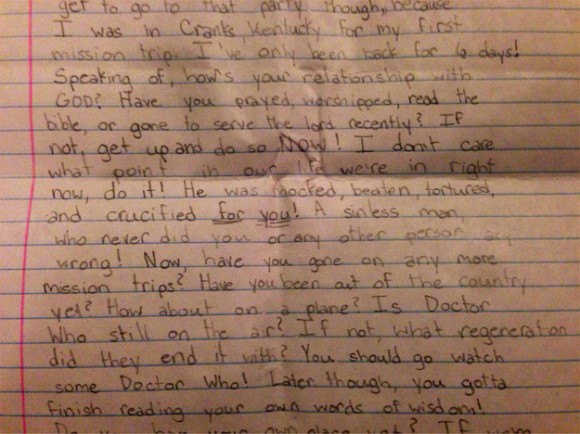 get to go to that party though, because
I was in Cranks, Kentucky for my first
mission trip. I've only been back for 6 days!
Speaking of, how's your relationship with
GOD? Have you prayed, worshipped, read the
bible, or gone to serve the lord recently? If
not, get up and do so NOW! I don't care
what point in our life we're in right
now, do it! He was mocked, beaten, tortured,
and crucified for you! A sinless man,
who never did you or any other person any
wrong! Now, have you gone on any more
mission trips? Have you been out of the country
yet? How about on a plane? Is Doctor
Who still on the air? If not, what regeneration
did they end it with? You should go watch
some Doctor Who! Later though, you gotta
finish reading your own words of wisdom!
your own place yet? If